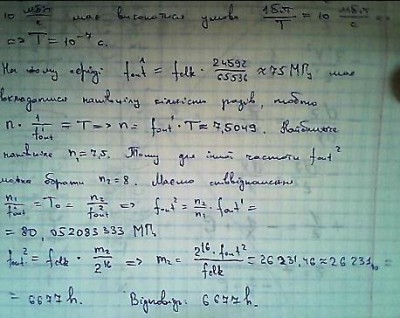 10 мбіт/с має виконатися умова 1біт/T = 10 мбіт/с =>
=> T = 10⁻⁷ с.
На цьому періоді fout¹ = fclk · 24592/65536 ≈ 75 МГц має
вкладатися кількість разів, тобто
n · 1/fout¹ = T => n = fout¹ · T ≈ 7,5049. Найближче
n₁ = 7,5. Тому для іншої частоти fout²
можна брати n₂ = 8. Маємо співвідношення
n₁/fout¹ = T₀ = n₂/fout² => fout² = n₂/n₁ · fout¹ =
= 80,052083333 МГц
fout² = fclk · m₂/2¹⁶ => m₂ = 2¹⁶ · fout²/fclk = 26231,46 ≈ 26231₁₀ =
= 6677h. Відповідь: 6677h.